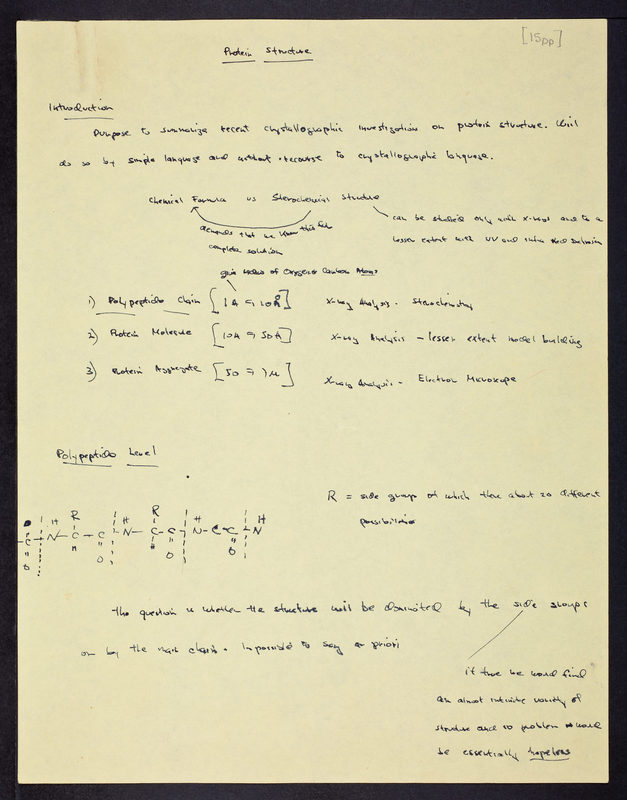 [15pp]
Protein Structure
Introduction
Purpose to summarize recent crystallographic investigation on protein structure. Will
do so by simple language and without recourse to crystallographic language.
Chemical Formula vs Sterochemical Structure
demands that we know this for
complete solution
can be studied only with X-rays and to a
lesser extent with UV and infra red
give of Oxygen or Carbon Atoms
1) Polypeptide Chain [1A → 10Å] X-ray Analysis - Sterochemistry
2) Protein Molecule [10A → 50A] X-ray Analysis - lesser extent model building
3) Protein Aggregate [50 → 1μ] X-ray Analysis - Electron Microscope
Polypeptide Level
R = side groups of which there about 20 different
possibilities
H R H R H H
C N C C N C C N C C N
O H O H O O
The question is whether the structure will be dominated by the side groups
or by the main chain. Impossible to say a priori
if true we would find
an almost infinite variety of
structure and so problem would
be essentially hopeless